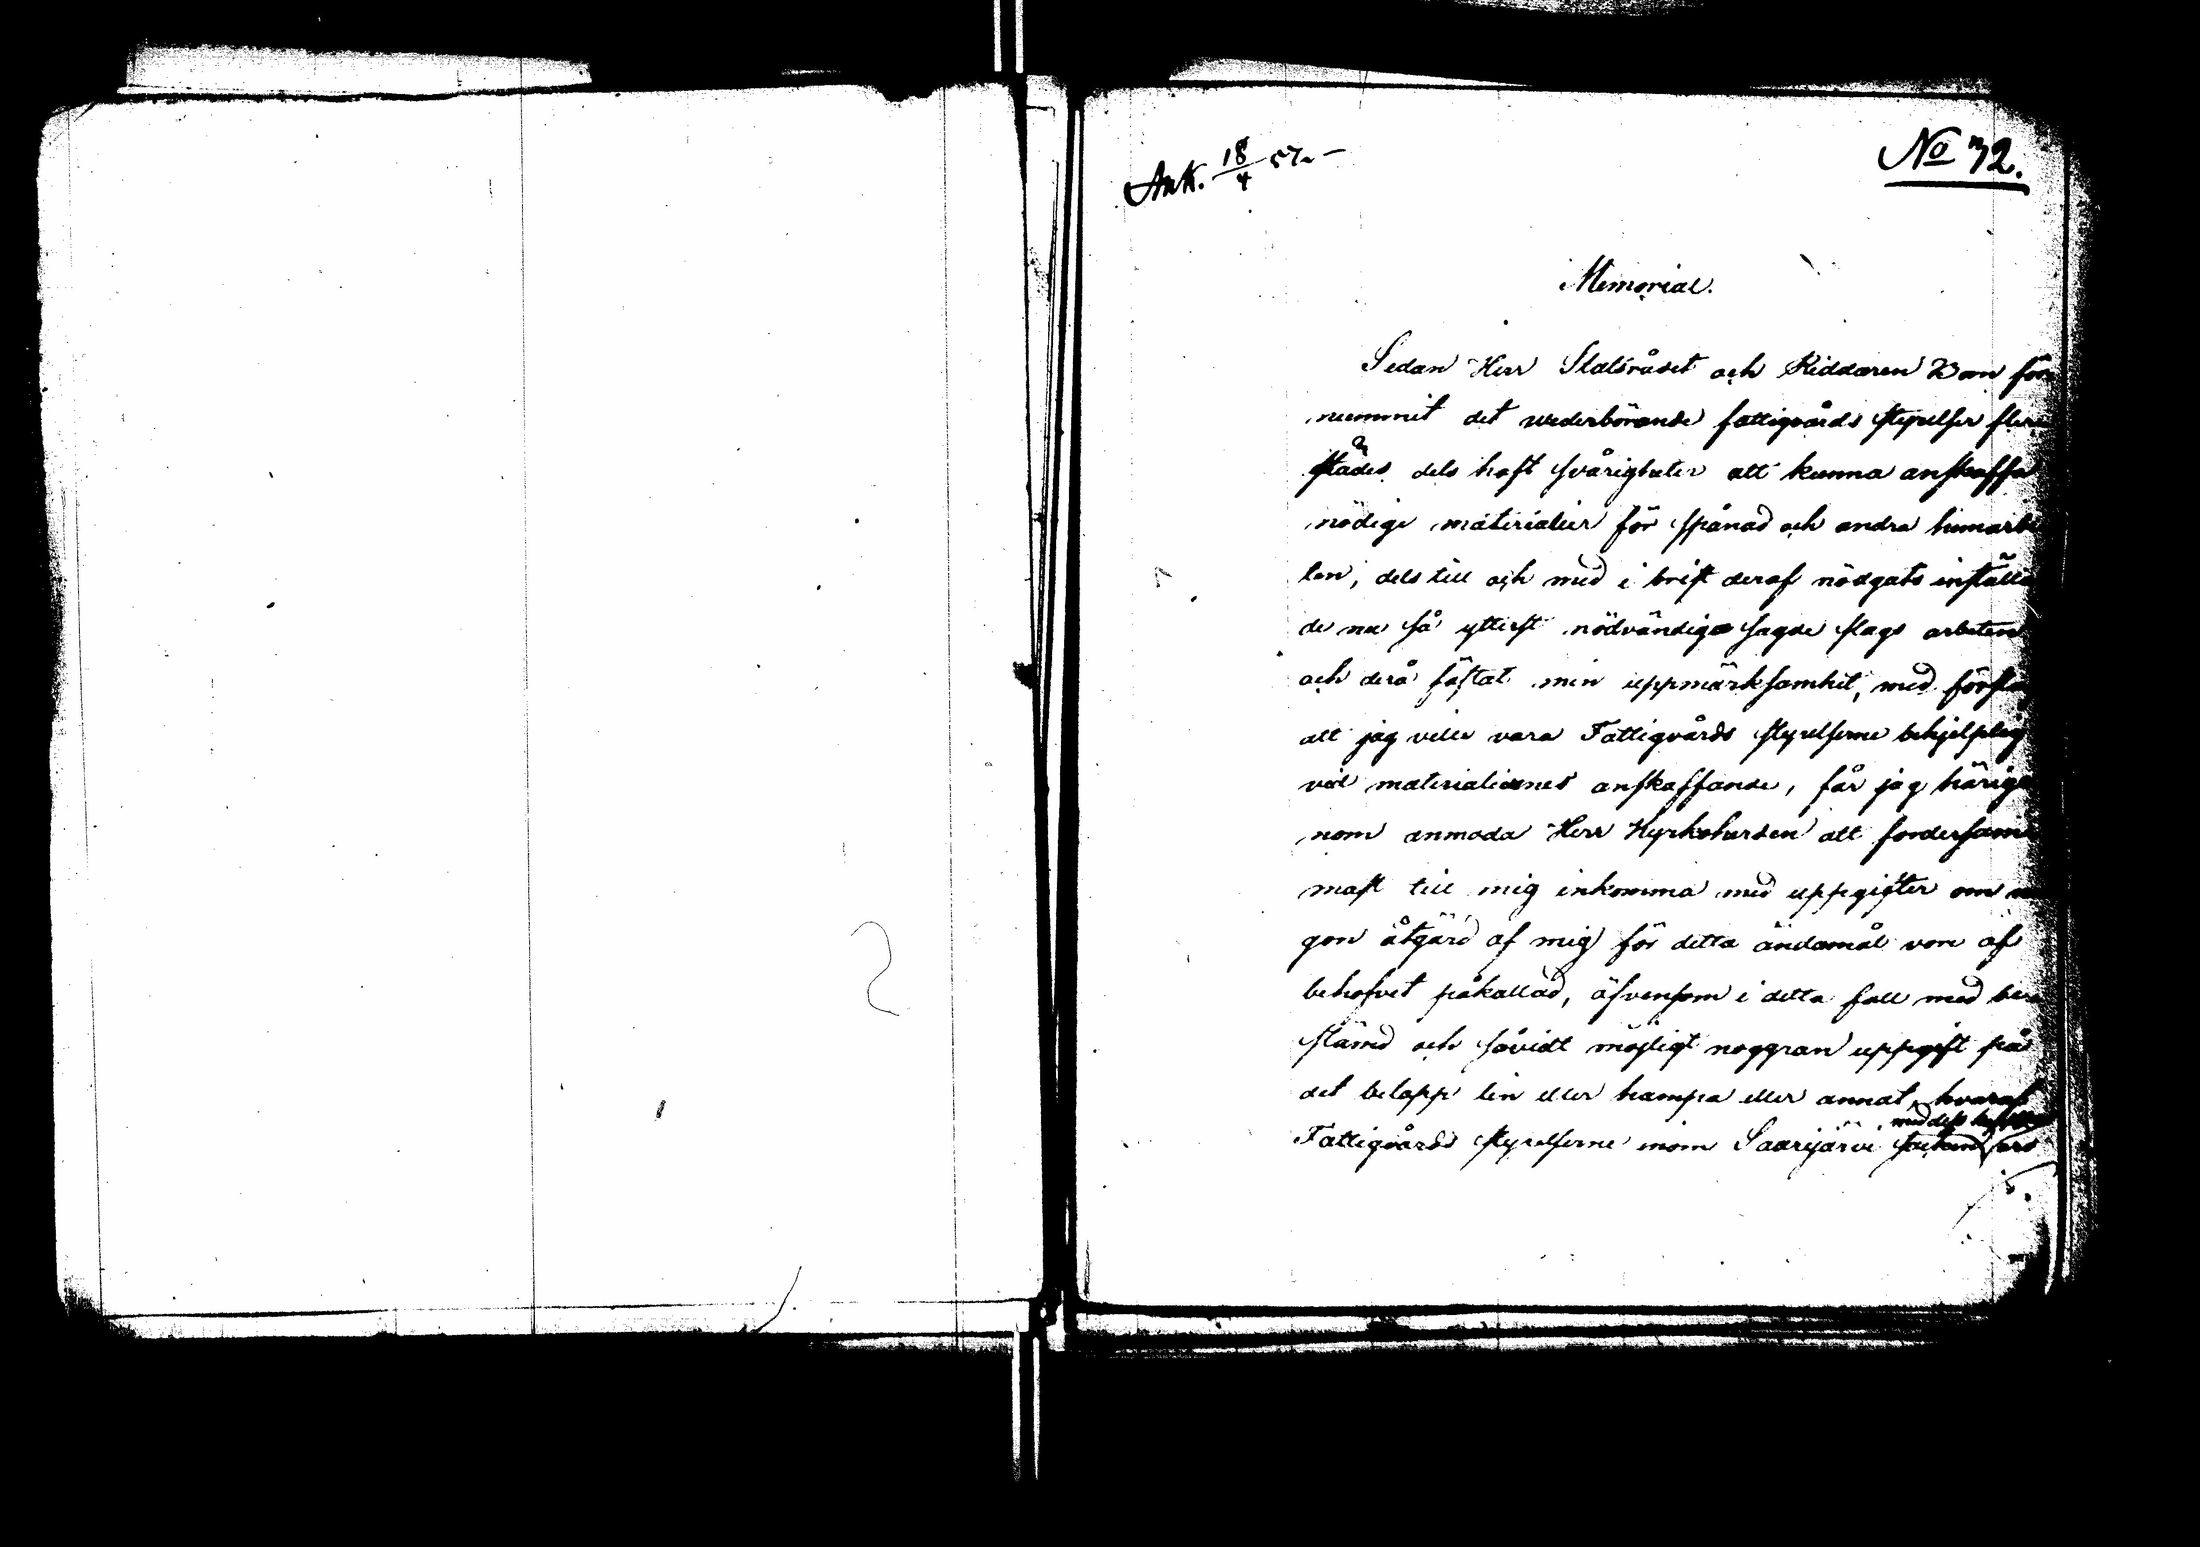 Ank. 18/4 57. –
No 32.
Memorial.
Sedan Herr Statsrådet och Riddaren Ban för
nummit det wederbörande fattigvårds styrelser flere
städes dels haft svårigheter att kunna anskaffa
nödige materialier för spånad och andra hemarbe
ten, dels till och med i brist deraf nödgats inställa
de nu så ytterst nödvändiga sagde slags arbeten
och derå fästat min uppmärksamhet, med förslag
att jag ville vara Fattigvårds styrelserne behjelplig
vid materialiernes anskaffande, får jag härige
nom anmoda Herr Kyrkoherden att fordersam
mast till mig inkomma med uppgifter om nå
gon åtgärd af mig för detta ändamål vore af
behofvet påkallad, äfvensom i detta fall med be
stämd och såvidt möjligt noggran uppgift på
det belopp lin eller hampa eller annat, hvaraf
med dess kapeller
Fattigvårds styrelserne inom Saarijärvi socken